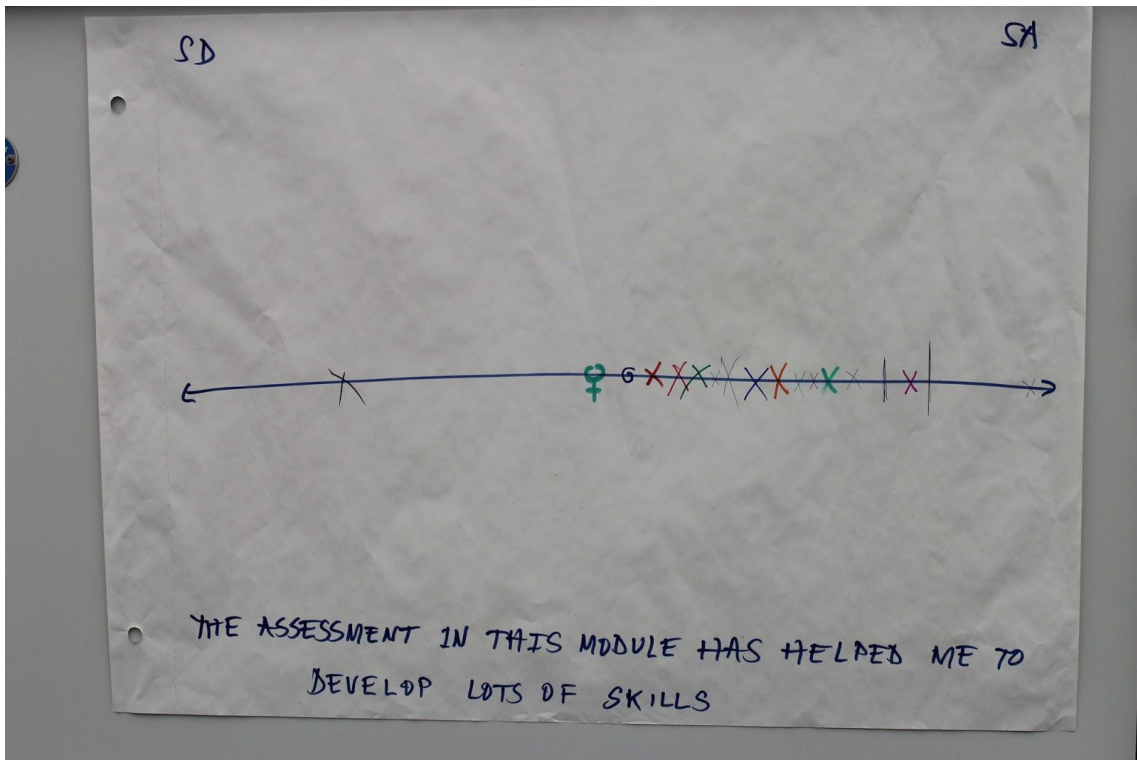 SD
SA
THE ASSESSMENT IN THIS MODULE HAS HELPED ME TO
DEVELOP LOTS OF SKILLS